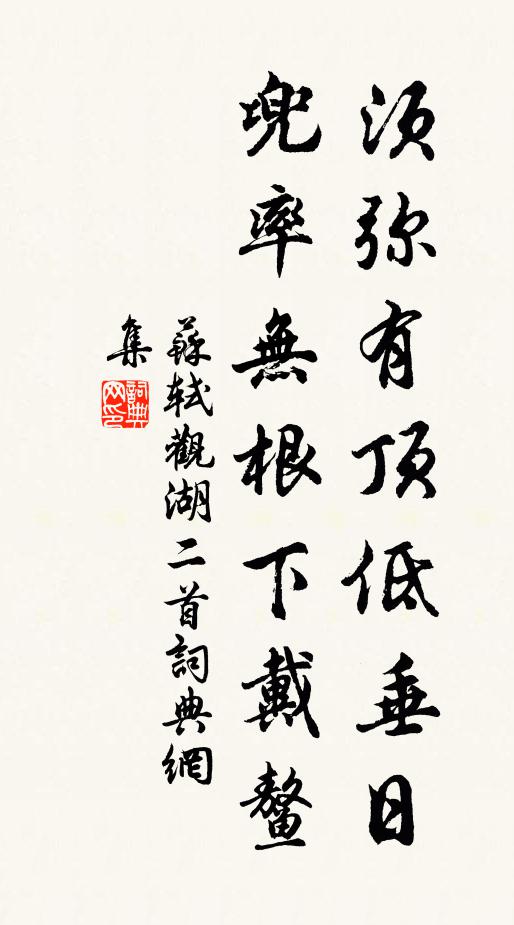 須弥有頂低垂日
兜率無根下戴鳌
蘇軾觀湖二首詞典網
集
詞典
网印